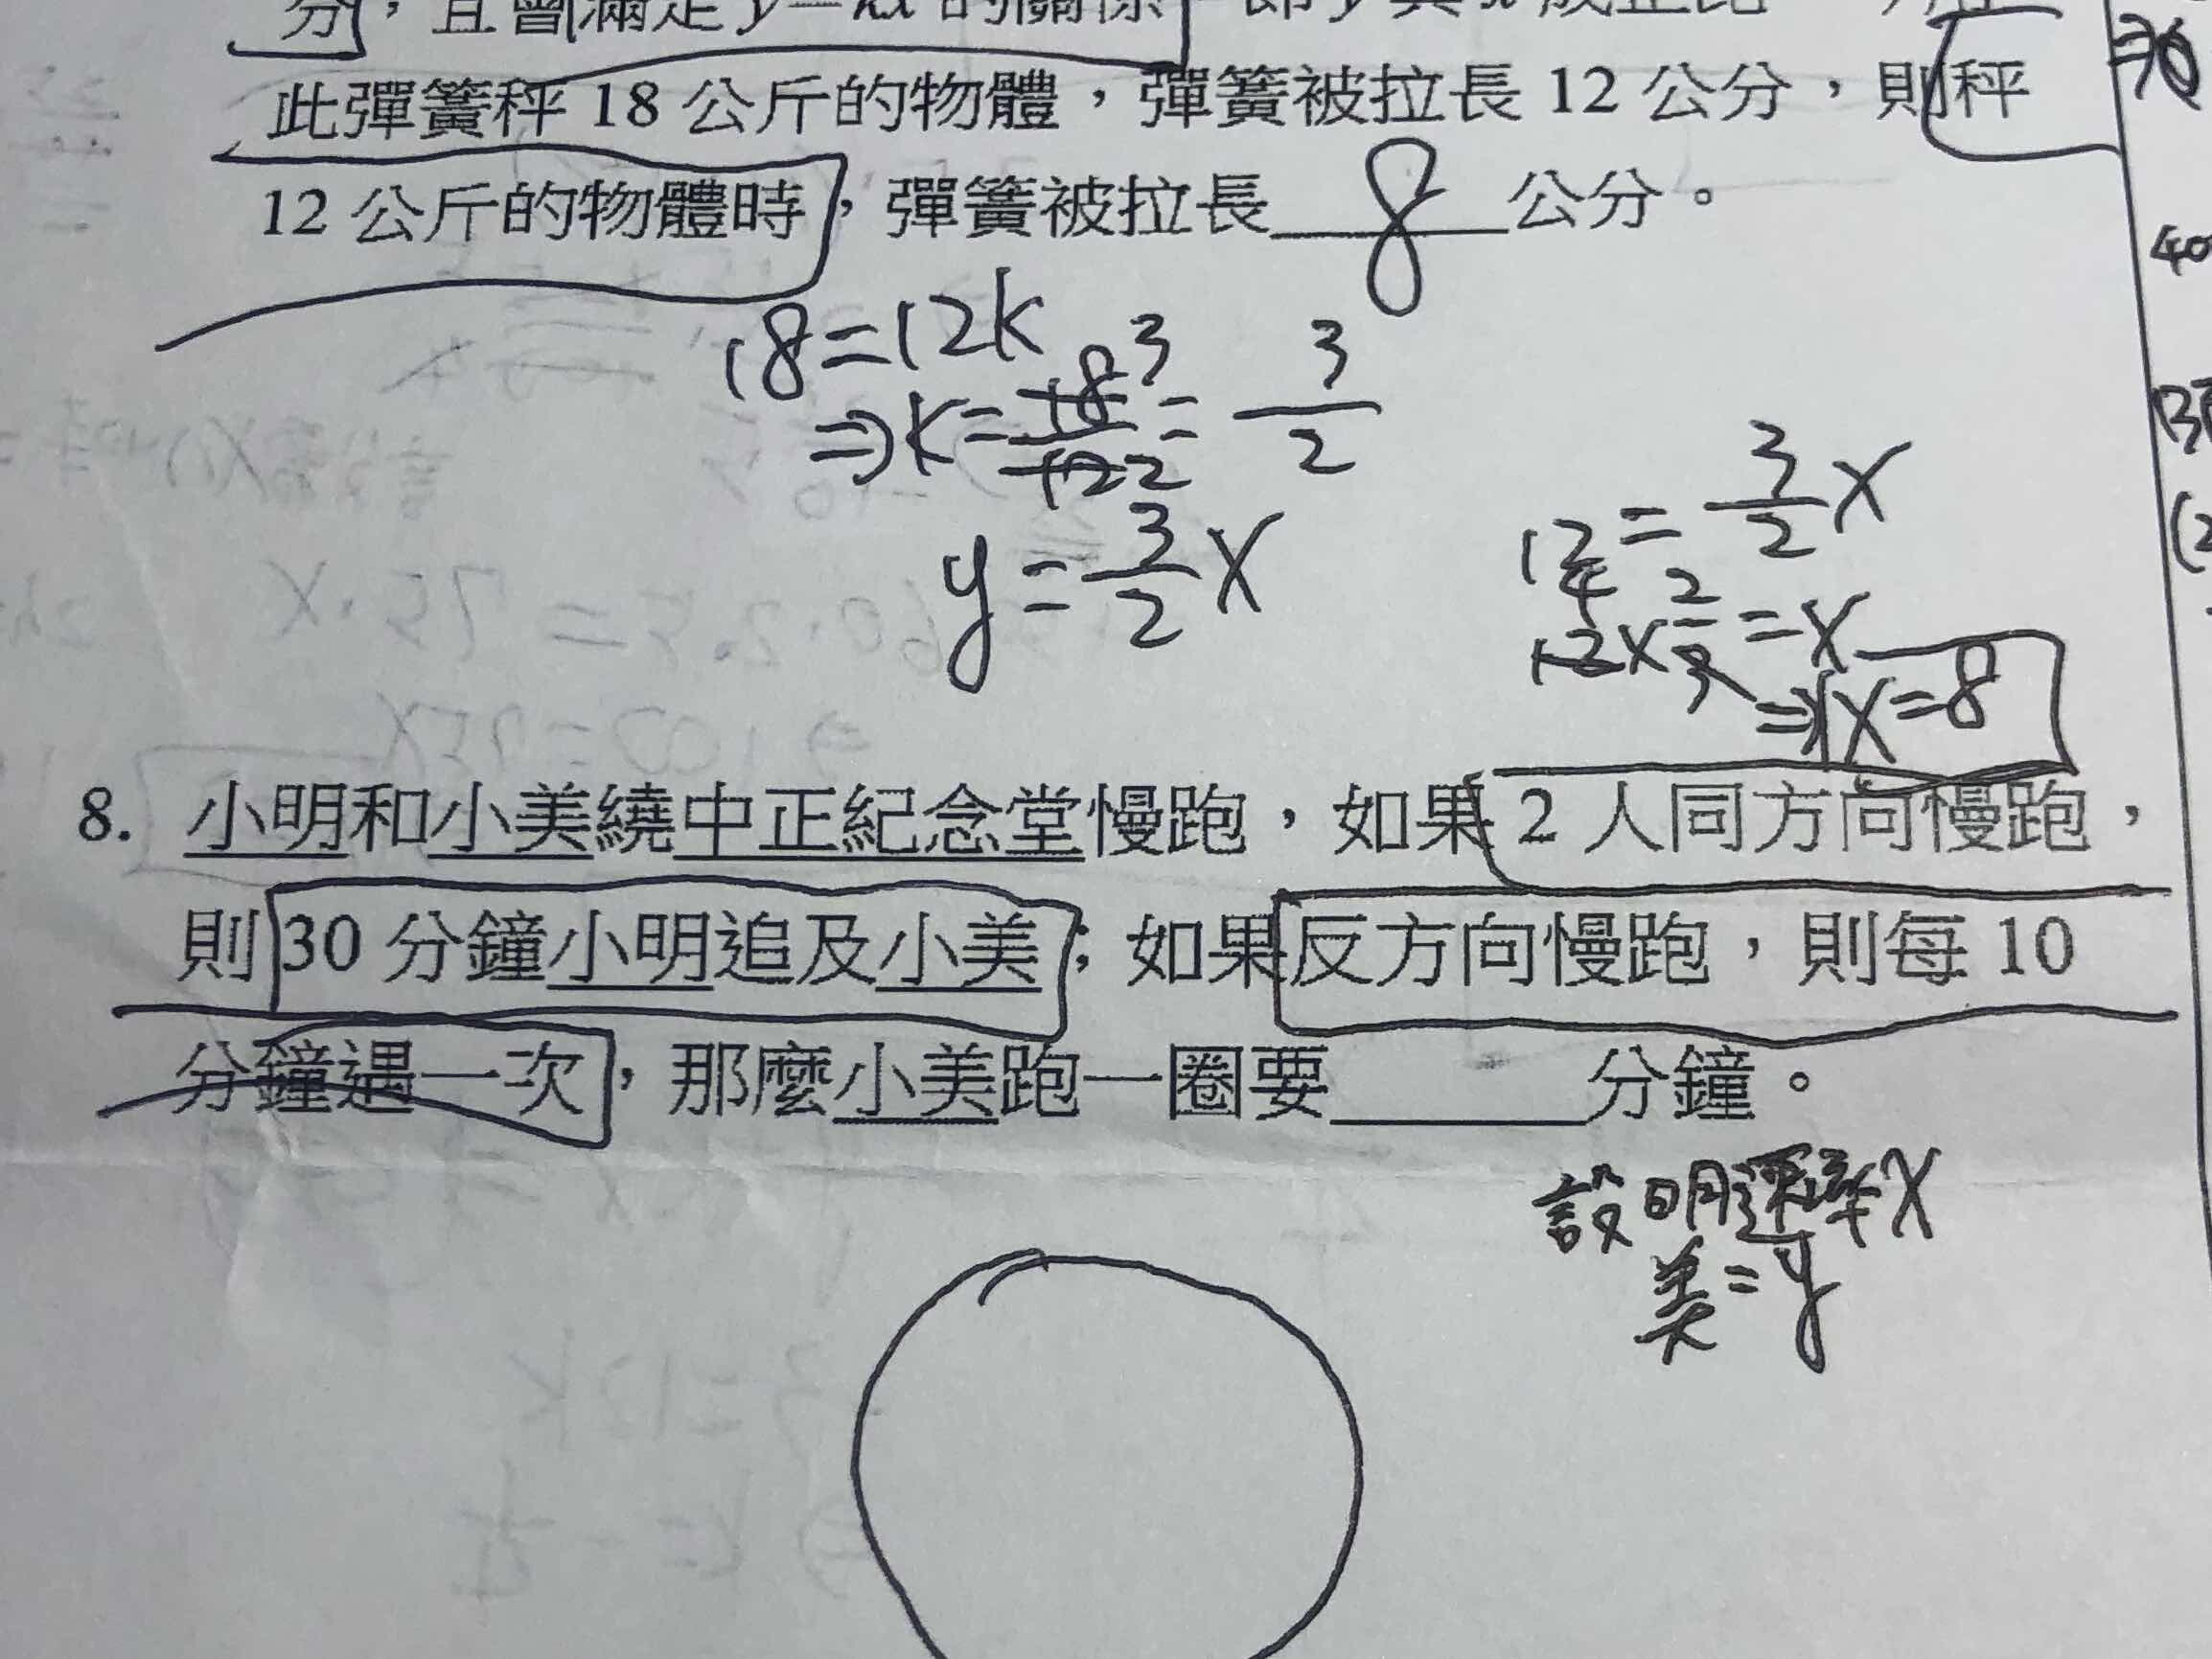 分，且會滿足y=kx的關係，即y與x成正比
此彈簧秤 18 公斤的物體，彈簧被拉長 12 公分，則秤
12 公斤的物體時，彈簧被拉長 8 公分。
18=12k
⇒k=18/12 3/2=3/2
y=3/2x
12=3/2x
4
12×2/3=x
⇒x=8
8. 小明和小美繞中正紀念堂慢跑，如果 2 人同方向慢跑，
則 30 分鐘小明追及小美；如果反方向慢跑，則每 10
分鐘遇一次，那麼小美跑一圈要______分鐘。
設明速率x
美=y
40